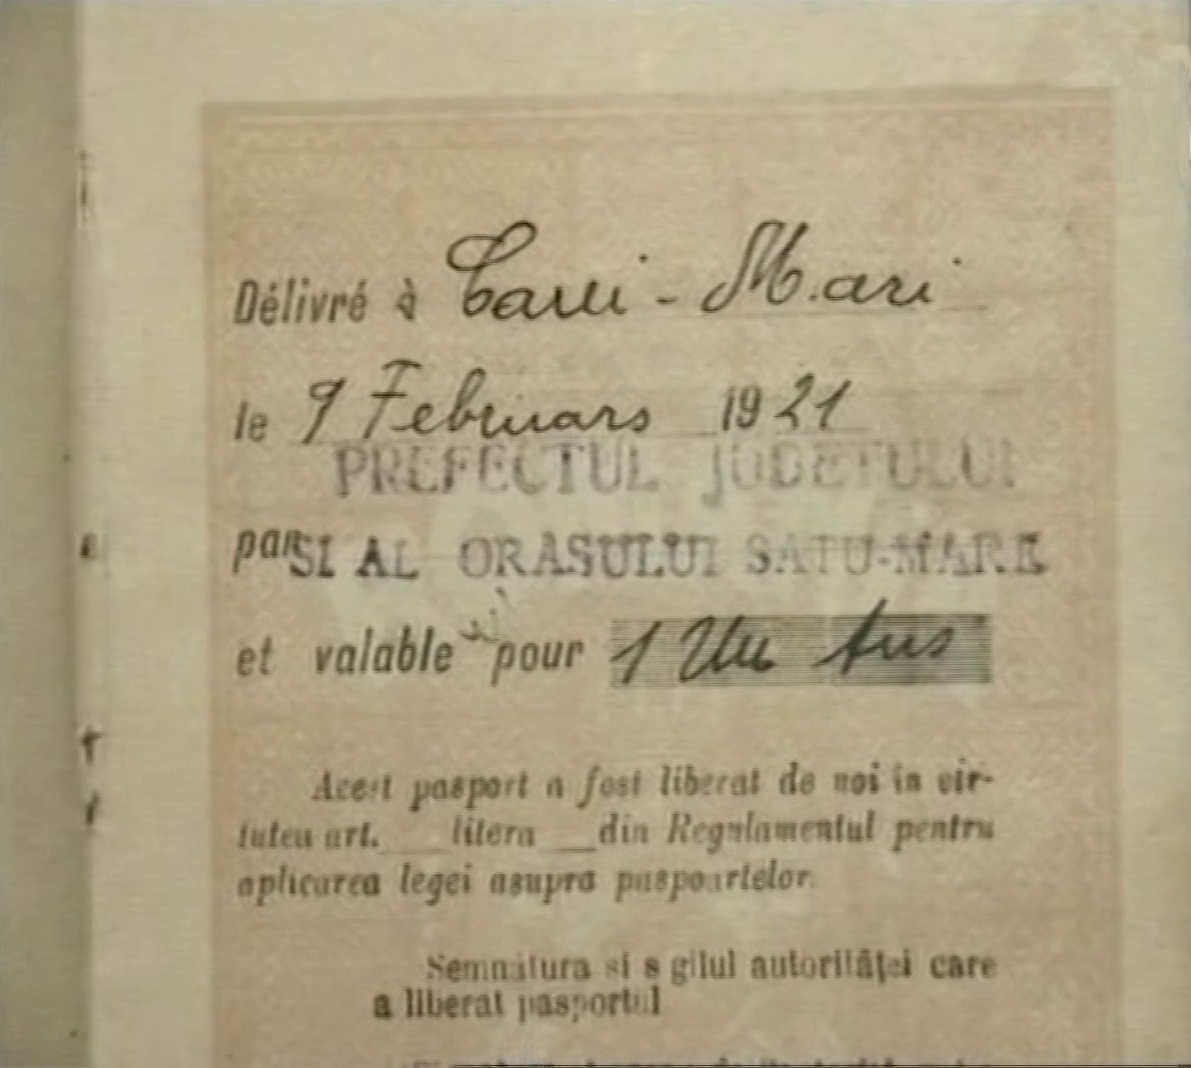 Délivré à Carei-Mari
le 9 Februars 1921
PREFECTUL JUDETULUI
par SI AL ORASULUI SATU-MARE
et valable pour 1 Un Ans
Acest pasport a fost liberat de noi în vir-
tutea art. __ litera __ din Regulamentul pentru
aplicarea legei asupra paspoartelor
Semnatura si s gilul autorităţei care
a liberat pasportul